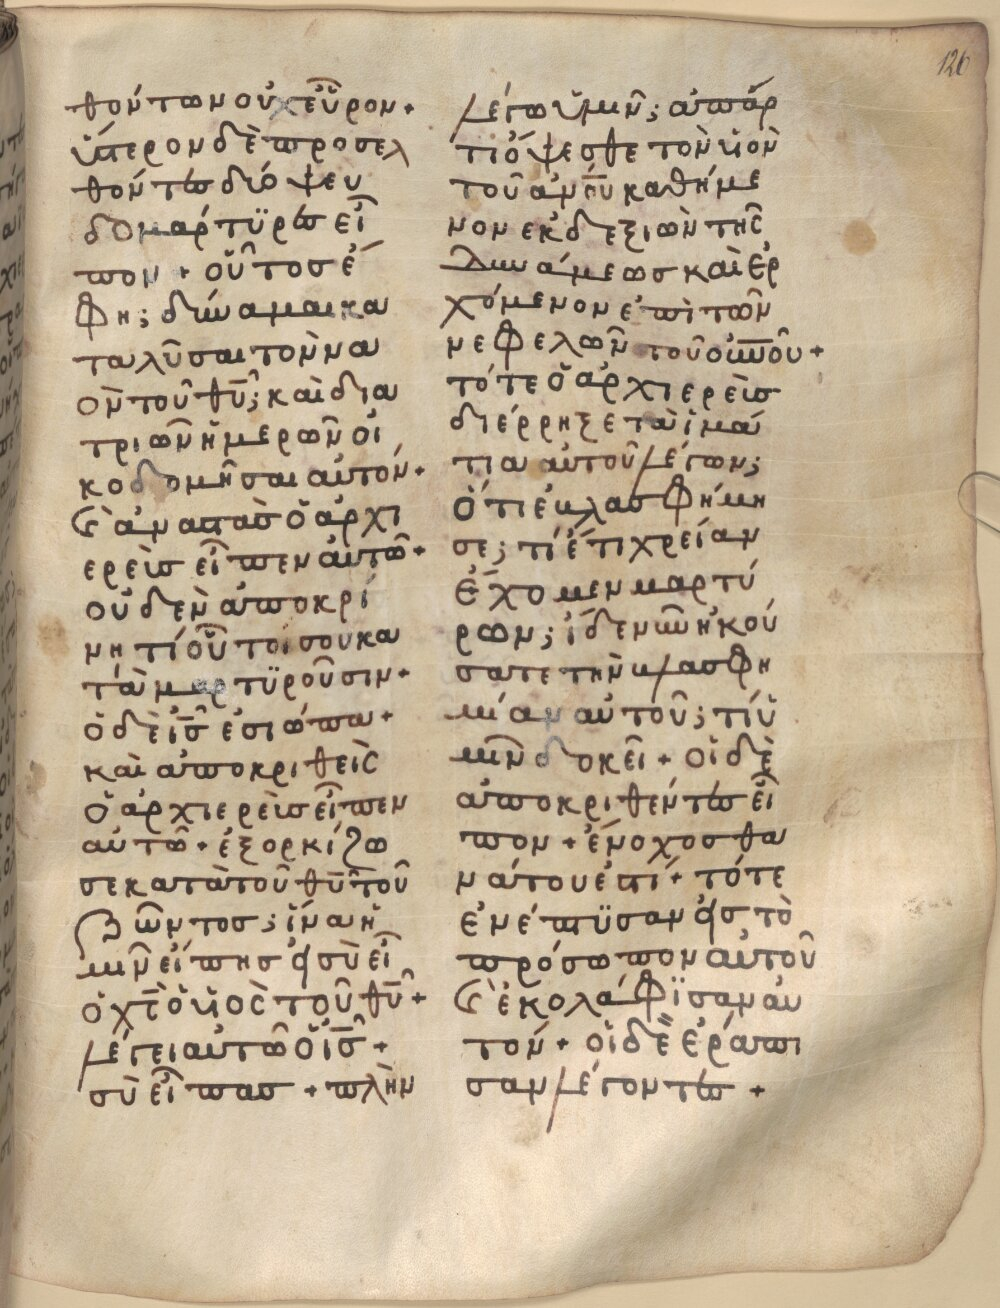 126
θόντων οὐχ εὗρον +
ὕστερον δὲ προσελ
θόντες δύο ψευ
δομάρτϋρες εἶ
πον + οὗτος ἔ
φη; δύναμαι κα
ταλῦσαι τὸν να
ὸν τοῦ θῡ; καὶ δια
τριῶν ἡμερῶν οἰ
κοδομῆσαι αὐτόν +
Καὶ ἀναστὰς ὁ ἀρχι
ερεὺς εἶπεν αὐτῶ +
οὐδὲν ἀποκρί
νη τί οὗτοι σου κα
ταμαρτϋροῦσιν +
ὁ δὲ ῑς̄ ἐσιώπα +
καὶ ἀποκριθεὶς
ὁ ἀρχιερεὺς εἶπεν
αὐτῶ + ἐξορκίζω
σε κατὰ τοῦ θῡ τοῦ
ζῶντος; ἵνα ἡ
μῖν εἴπης εἰ σὺ εἶ
ὁ χς̄ ὁ υἱὸς τοῦ θῡ +
λέγει αὐτῶ ὁ ῑς̄ +
σὺ εἶπας + πλὴν
λέγω ὑμῖν; ἀπάρ
τι ὄψεσθε τὸν υἱὸν
τοῦ ἀνο̄υ καθήμε
νον ἐκ δεξιῶν τῆς
δυνάμεως καὶ ἐρ
χόμενον ἐπὶ τῶν
νεφελῶν τοῦ οὐνοῦ +
τότε ὁ ἀρχιερεὺς
διέρρηξε τὰ ἱμά
τια αὐτοῦ λέγων;
ὅτι ἐβλασφήμη
σε; τί ἔτι χρείαν
ἔχομεν μαρτύ
ρων; ἴδε νῦν ἠκού
σατε τὴν βλασφη
μίαν αὐτοῦ; τί ὑ
μῖν δοκεῖ + οἱ δὲ
ἀποκριθέντες εἶ
πον + ἔνοχος θα
νάτου ἐστί + τότε
ἐνέπτϋσαν εἰς τὸ
πρόσωπον αὐτοῦ
Καὶ ἐκολάφϊσαν αὐ
τόν + οἱ δὲ ἐράπι
σαν λέγοντες +